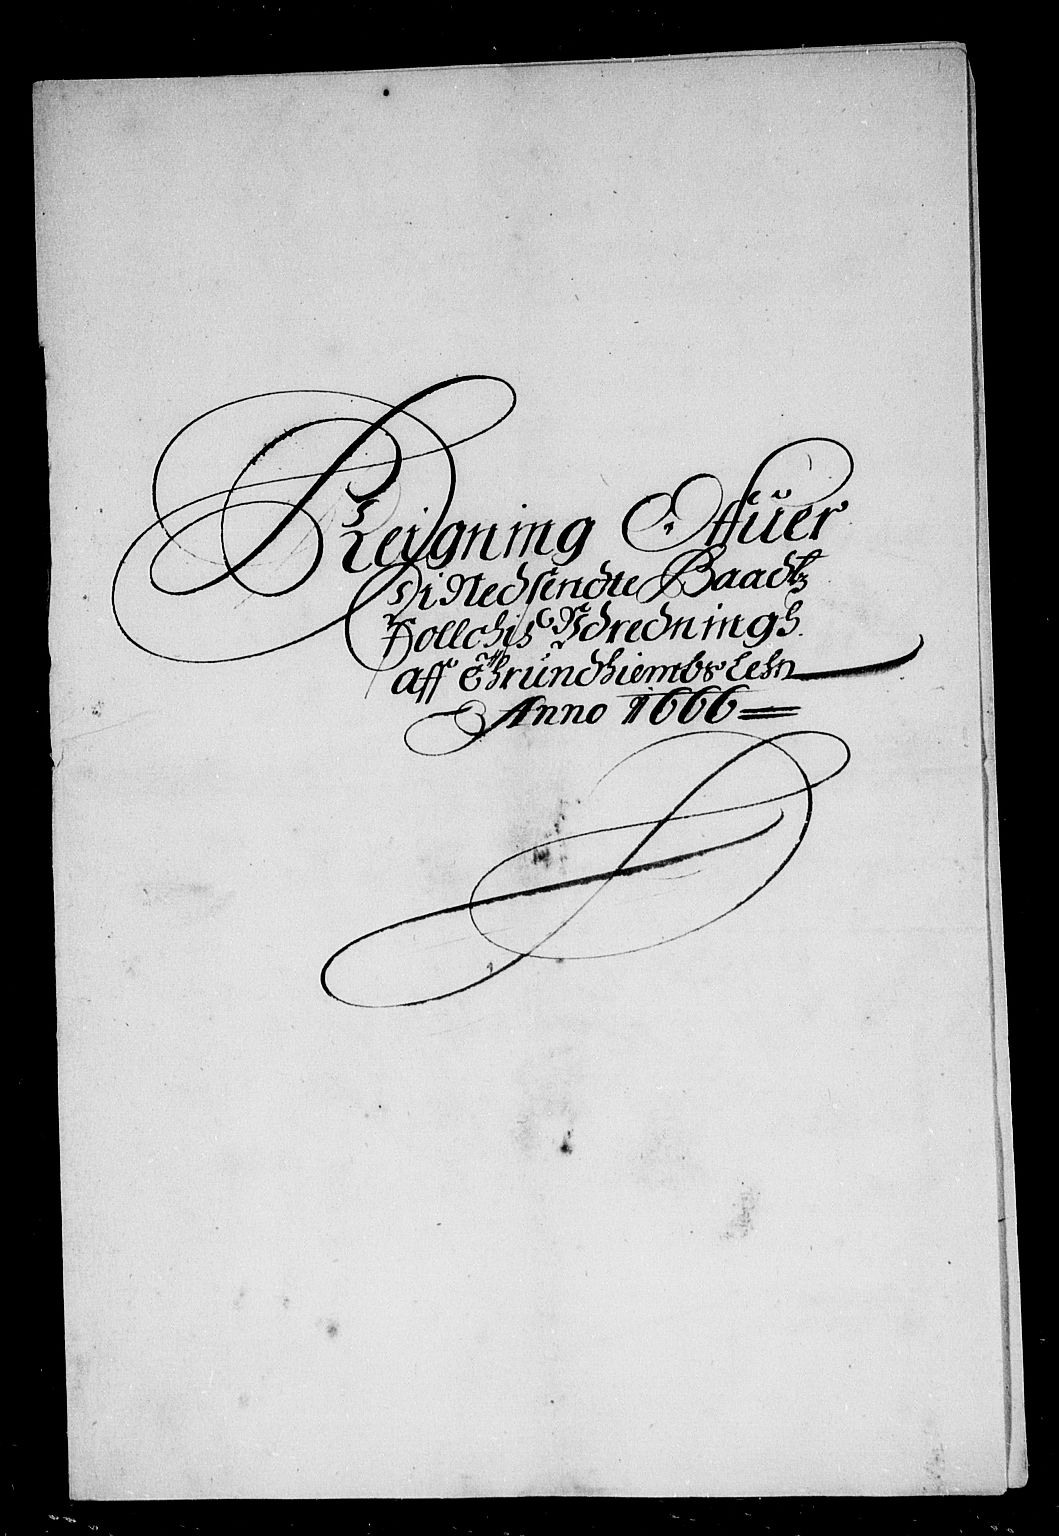 Reigning Offuer
Di Nedsendte Baadtz
Follchis Udrednings
aff Thrundhiembs Lehn
Anno 1666